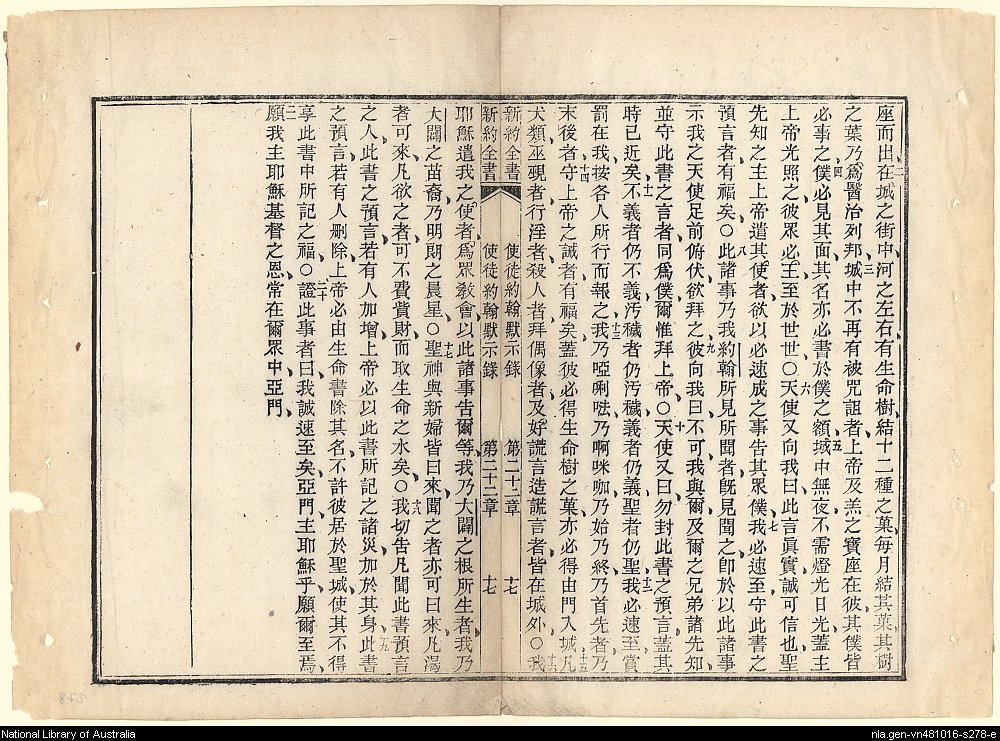 座而出在城之街中河之左右有生命樹結十二種之菓每月結其菓其樹
之葉乃爲醫治列邦城中不再有被咒詛者上帝及羔之寶座在彼其僕皆
必事之僕必見其面其名亦必書於僕之額城中無夜不需燈光日光蓋主
上帝光照之彼眾必王至於世世○天使又向我曰此言眞實誠可信也聖
先知之主上帝遣其使者欲以必速成之事告其眾僕我必速至守此書之
預言者有福矣○此諸事乃我約翰所見所聞者旣見聞之卽於以此諸事
示我之天使足前俯伏欲拜之彼向我曰不可我與爾及爾之兄弟諸先知
並守此書之言者同爲僕爾惟拜上帝○天使又曰勿封此書之預言蓋其
時已近矣不義者仍不義汚穢者仍汚穢義者仍義聖者仍聖我必速至賞
罰在我按各人所行而報之我乃啞唎㕷乃啊咪咖乃始乃終乃首先者乃
末後者守上帝之誡者有福矣蓋彼必得生命樹之菓亦必得由門入城凡
犬類巫覡者行淫者殺人者拜偶像者及好謊言造謊言者皆在城外○我
新約全書 使徒約翰默示錄 第二十二章 十七
新約全書 使徒約翰默示錄 第二十二章 十七
耶穌遣我之使者爲眾敎會以此諸事告爾等我乃大闢之根所生者我乃
大闢之苗裔乃明朗之晨星○聖神與新婦皆曰來聞之者亦可曰來凡渴
者可來凡欲之者可不費貲財而取生命之水矣○我切告凡聞此書預言
之人此書之預言若有人加增上帝必以此書所記之諸災加於其身此書
之預言若有人删除上帝必由生命書除其名不許彼居於聖城使其不得
享此書中所記之福○證此事者曰我誠速至矣亞門主耶穌乎願爾至焉
願我主耶穌基督之恩常在爾眾中亞門
National Library of Australia
nla.gen-vn481016-s278-e